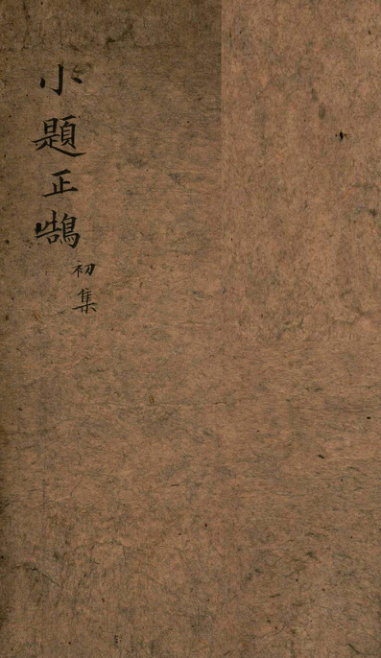 小題正鵠
初集